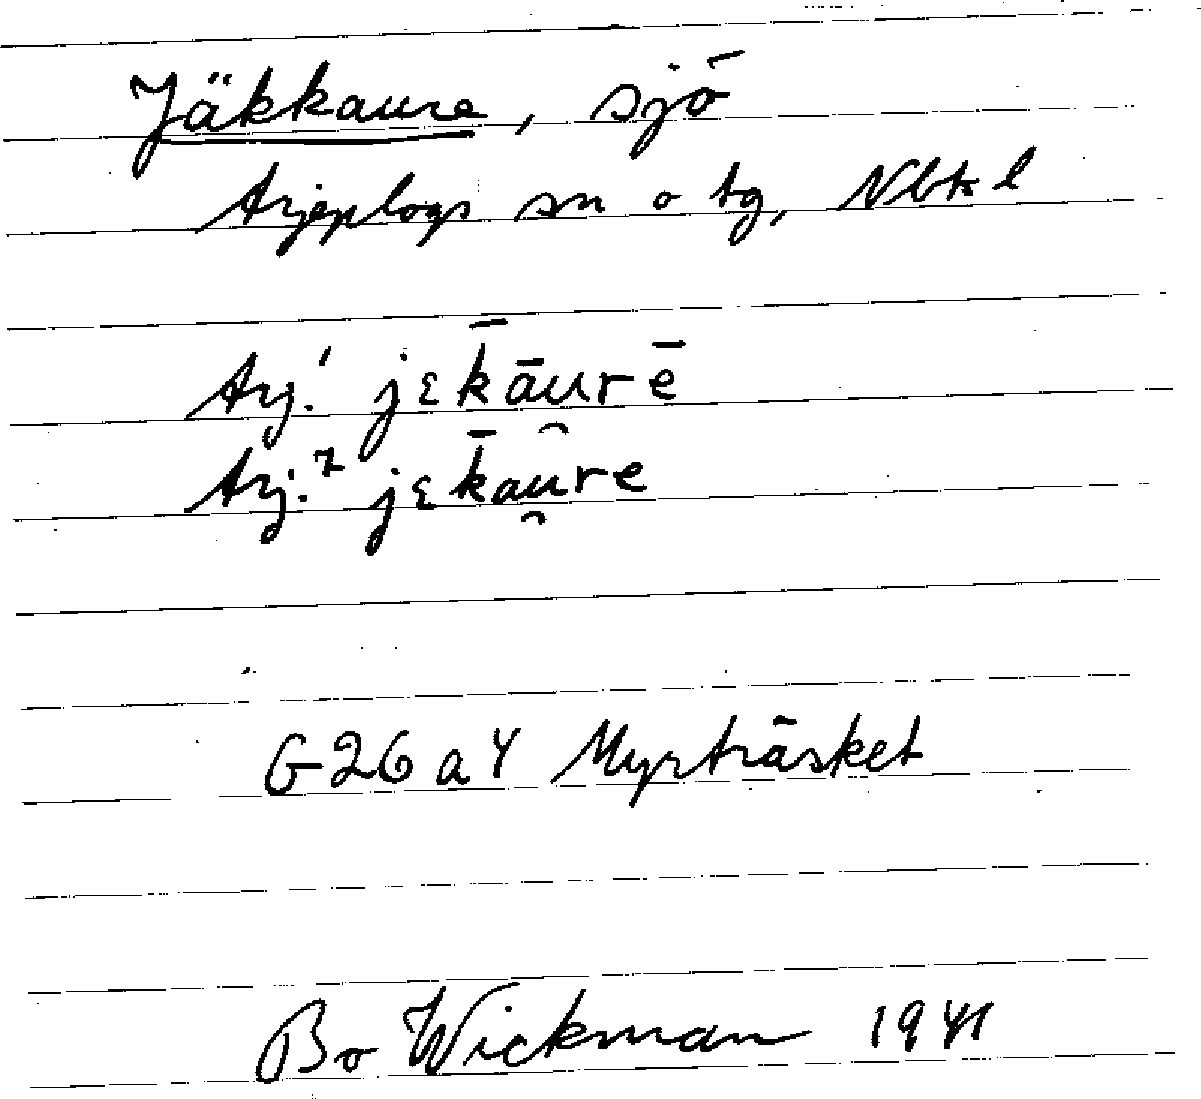 Jäkkaure, sjö
Arjeplogs sn o tg, Nbtk l
Arj.¹ jɛk̄āu̯rē
Arj.² jɛk̄au̯re
G26 a Y Myrträsket
Bo Wickman 1941